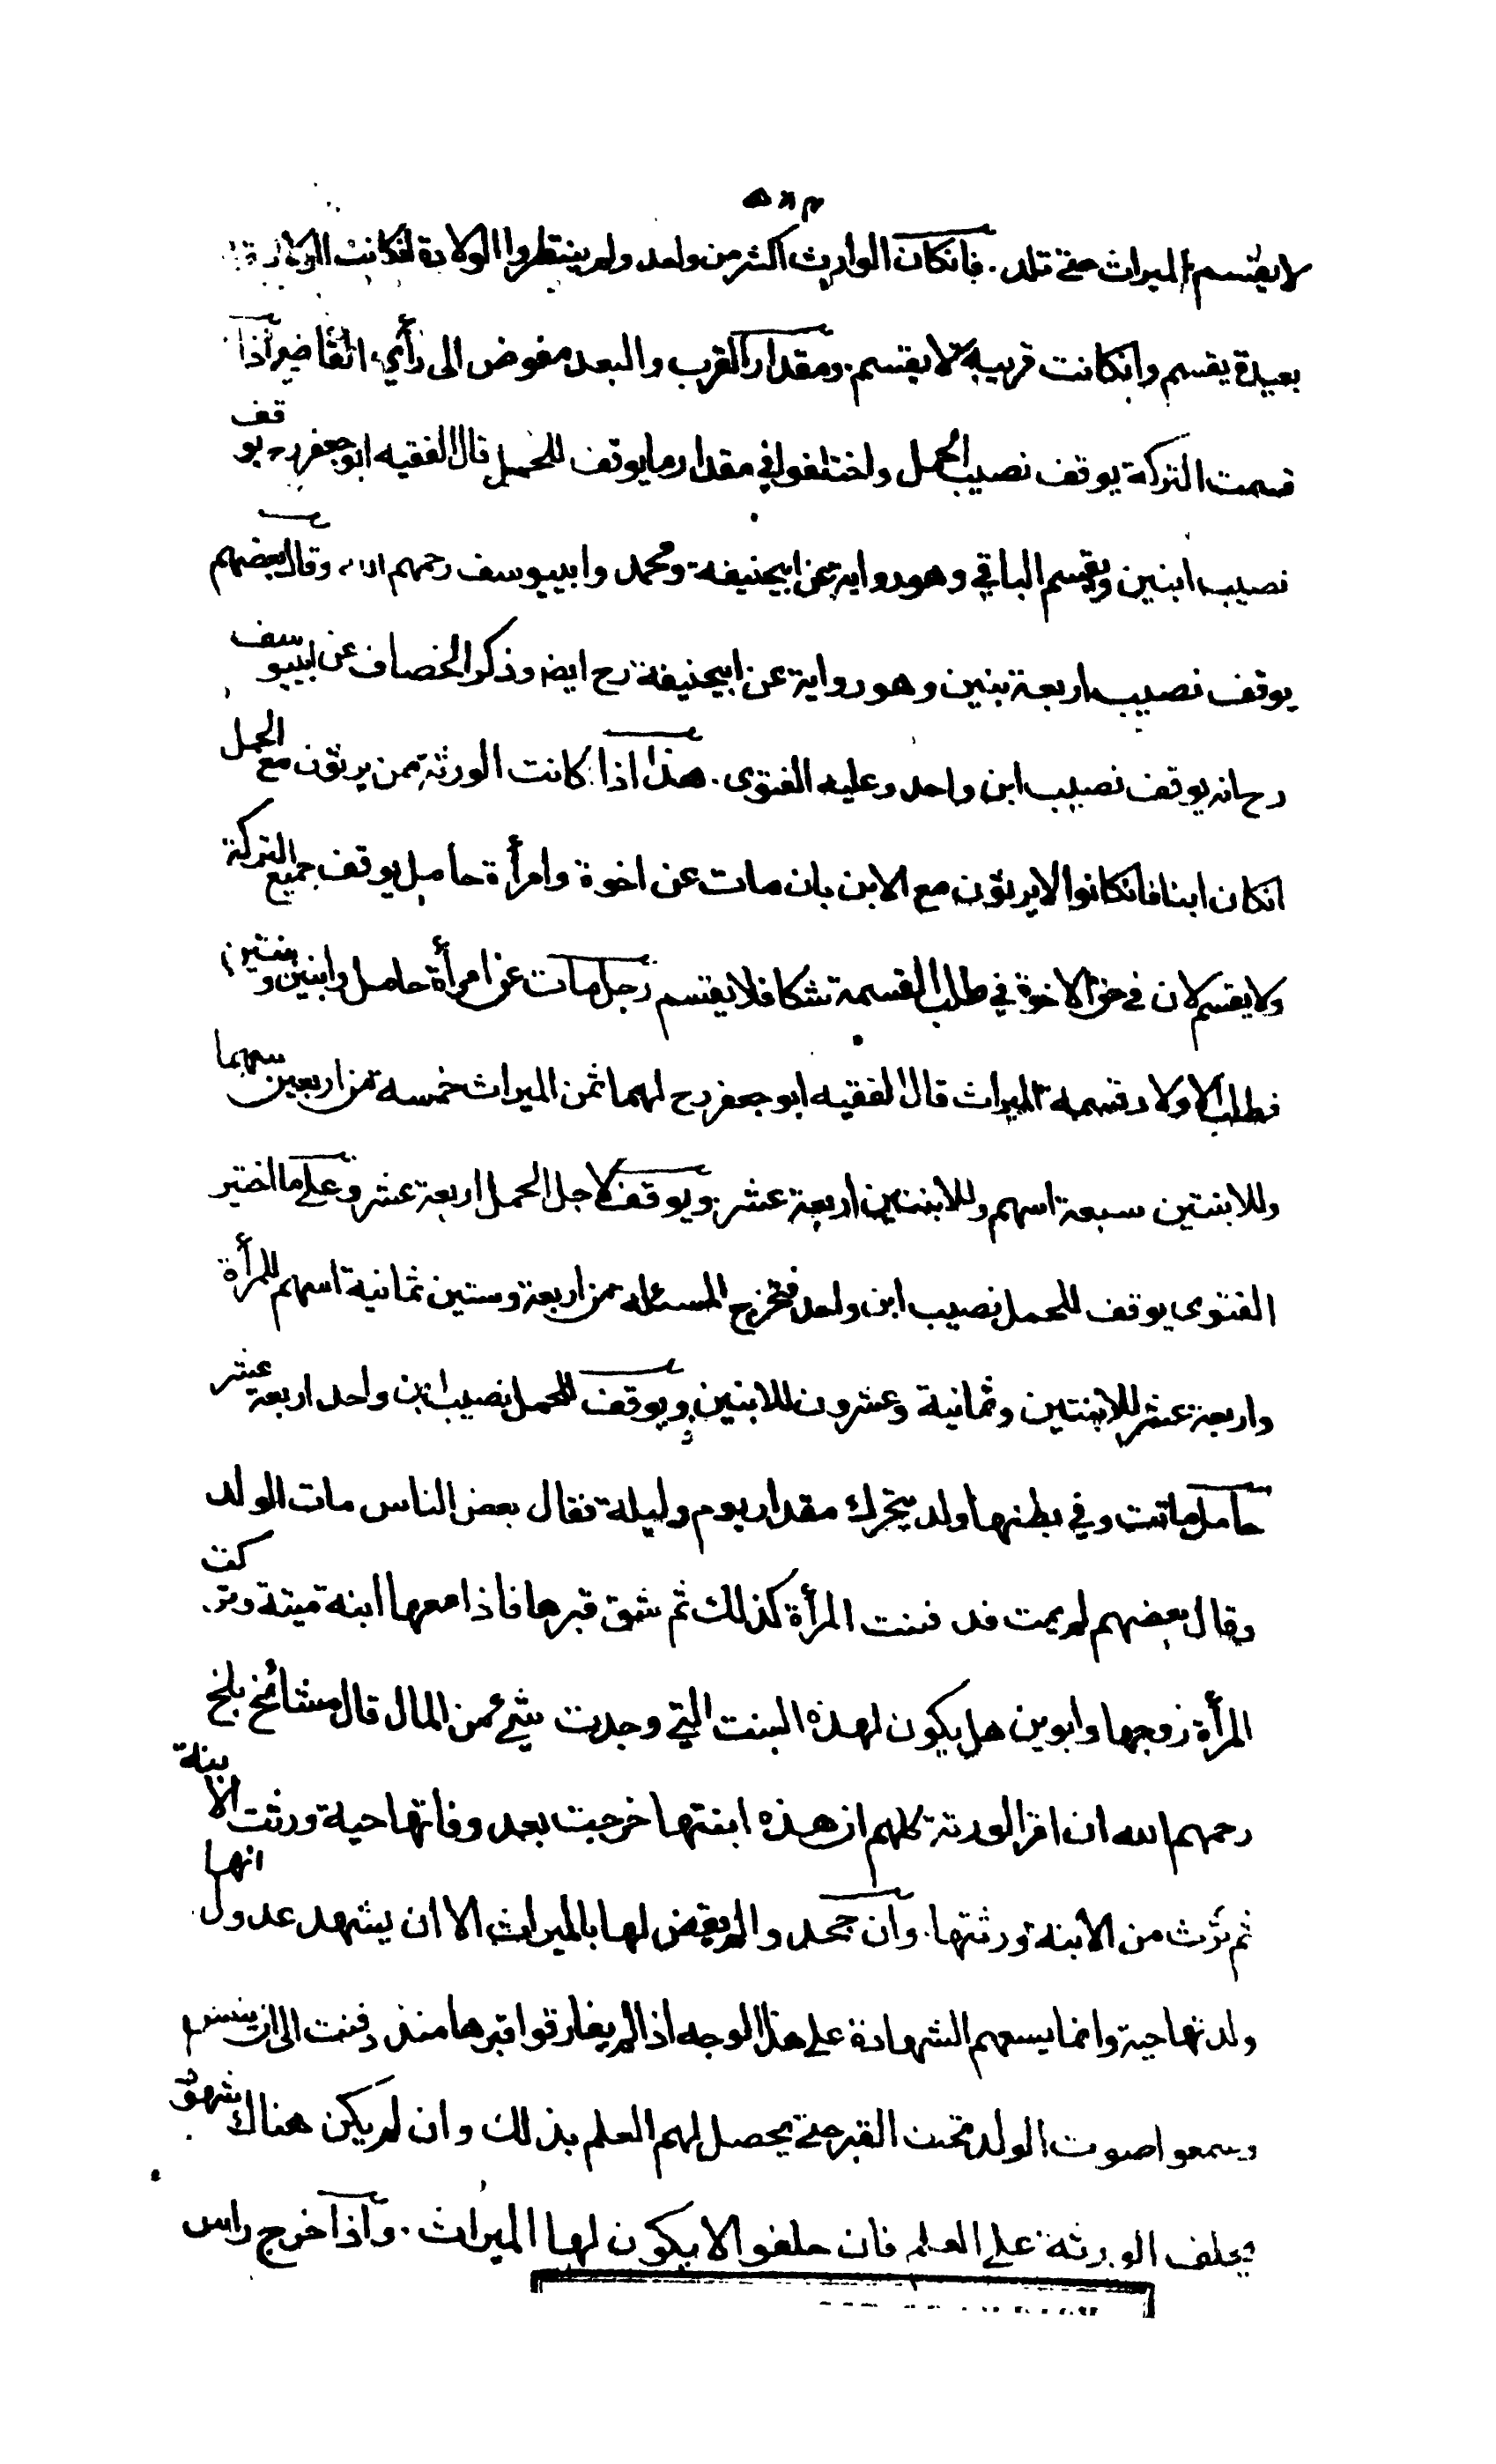 لا يقتسم الميراث حتى تلد . فانكان الوارث اكثر من واحد ولم ينتظروا الولادة انكانت الولادة
بعيدة يقسم وانكانت قريبة لا يقتسم . ومقدار القرب والبعد مفوض الى رأي القاضي واذا
قسمت التركة يوقف نصيب الحمل واختلفوا في مقدار ما يوقف للحمل قال الفقيه ابو جعفر رح يوقف
نصيب ابنين ويقسم الباقي وهو رواية عن ابيحنيفة ومحمد وابييوسف رحمهم الله وقال بعضهم
يوقف نصيب اربعة بنين وهو رواية عن ابيحنيفة رح ايض وذكر الخصاف عن ابييوسف
رح انه يوقف نصيب ابن واحد وعليه الفتوى . هذا اذا كانت الورثة ممن يرثون مع الحمل
انكان ابنا فانكانوا لا يرثون مع الابن بان مات عن اخوة وامرأة حامل يوقف جميع التركة
ولا يقسم لان في حق الاخوة في طلب القسمة شكا فلا يقتسم رجل مات عن امرأة حامل وابنين وبنتين
فطلب الاولاد قسمة الميراث قال الفقيه ابو جعفر رح لهما ثمن الميراث خمسة من اربعين سهما
وللابنتين سبعة اسهم وللابنين اربعة عشر . ويوقف لاجل الحمل اربعة عشر وعلى ما اختير
الفتوى يوقف للحمل نصيب ابن واحد فتخرج المسئلة من اربعة وستين ثمانية اسهم للمرأة
واربعة عشر للابنتين وثمانية وعشرون للابنين ويوقف للحمل نصيب ابن واحد اربعة عشر
حامل ماتت وفي بطنها ولد يتحرك مقدار يوم وليلة فقال بعض الناس مات الولد
وقال بعضهم لم يمت فدفنت المرأة كذلك ثم شق قبرها فاذا معها ابنة ميتة وتركت
المرأة زوجها وابوين هل يكون لهذه البنت التي وجدت شئ من المال قال مشائخ بلخ
رحمهم الله ان اقر الورثة كلهم ان هذه ابنتها خرجت بعد وفاتها حية ورثت الابنة
ثم ترث من الابنة ورثتها . وان جحدوا لم يقض لها بالميراث الا ان يشهد عدول انها
ولدتها حية وانما يسعهم الشهادة على هذا الوجه اذا لم يفارقوا قبرها منذ دفنت الى ان ينبش
وسمعوا صوت الولد تحت القبر حتى يحصل لهم العلم بذلك وان لم يكن هناك شهود
يحلف الورثة على العلم فان حلفوا لا يكون لها الميراث . واذا خرج راس